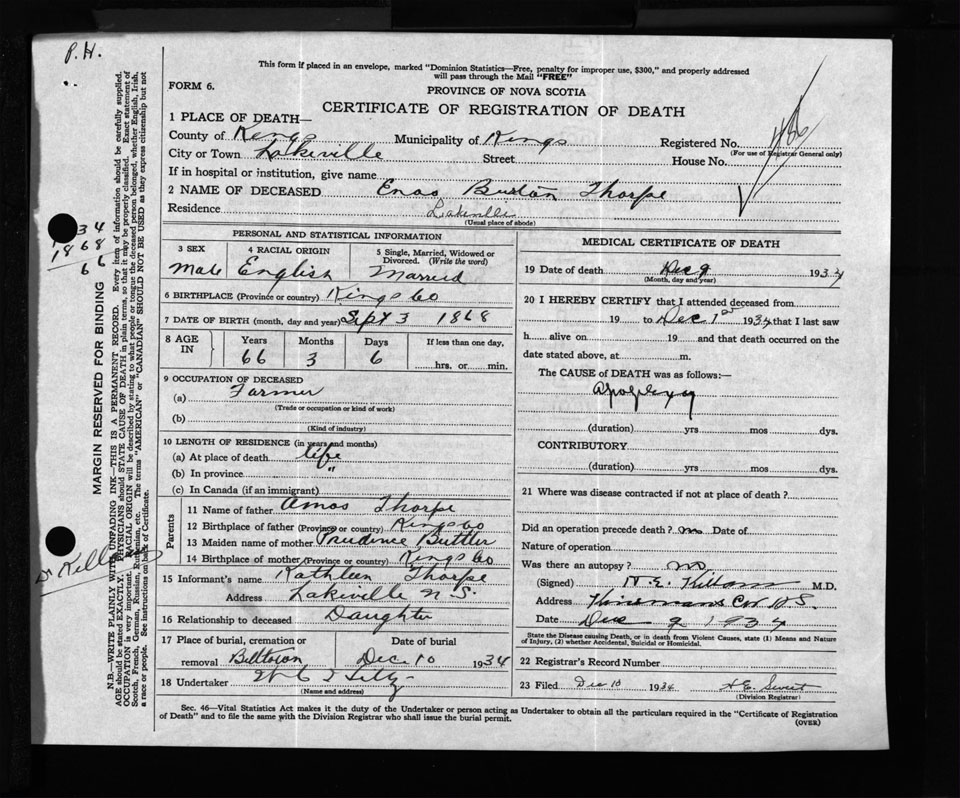 P.H.
This form if placed in an envelope, marked "Dominion Statistics—Free, penalty for improper use, $300," and properly addressed
will pass through the Mail "FREE"
FORM 6.
PROVINCE OF NOVA SCOTIA
CERTIFICATE OF REGISTRATION OF DEATH
1 PLACE OF DEATH—
County of Kings Municipality of Kings Registered No. 486
(For use of Registrar General only)
City or Town Lakeville Street House No.
If in hospital or institution, give name
2 NAME OF DECEASED Enos Burton Thorpe
Residence Lakeville
(Usual place of abode)
PERSONAL AND STATISTICAL INFORMATION
3 SEX 4 RACIAL ORIGIN 5 Single, Married, Widowed or
Divorced. (Write the word)
Male English Married
6 BIRTHPLACE (Province or country) Kings Co
7 DATE OF BIRTH (month, day and year) Sept 3 1868
8 AGE IN Years Months Days If less than one day,
66 3 6 hrs. or min.
9 OCCUPATION OF DECEASED
(a) Farmer
(Trade or occupation or kind of work)
(b)
(Kind of industry)
10 LENGTH OF RESIDENCE (in years and months)
(a) At place of death life
(b) In province "
(c) In Canada (if an immigrant)
Parents
11 Name of father Amos Thorpe
12 Birthplace of father (Province or country) Kings Co
13 Maiden name of mother Prudence Buttler
14 Birthplace of mother (Province or country) Kings Co
15 Informant's name Kathleen Thorpe
Address Lakeville N.S.
16 Relationship to deceased Daughter
17 Place of burial, cremation or Date of burial
removal Billtown Dec 10 1934
18 Undertaker
(Name and address)
MEDICAL CERTIFICATE OF DEATH
19 Date of death Dec 9 1934
(Month, day and year)
20 I HEREBY CERTIFY that I attended deceased from
19 to Dec 1st 1934 that I last saw
h alive on 19 and that death occurred on the
date stated above, at m.
The CAUSE OF DEATH was as follows:—
Apoplexy
(duration) yrs mos dys.
CONTRIBUTORY
(duration) yrs mos dys.
21 Where was disease contracted if not at place of death?
Did an operation precede death? no Date of
Nature of operation
Was there an autopsy? no
(Signed) M.D.
Address Kinsmans Cor N.S.
Date Dec 9 1934
State the Disease causing Death, or in death from Violent Causes, state (1) Means and Nature
of Injury, (2) whether Accidental, Suicidal or Homicidal.
22 Registrar's Record Number
23 Filed Dec 10 1934
(Division Registrar)
Sec. 46—Vital Statistics Act makes it the duty of the Undertaker or person acting as Undertaker to obtain all the particulars required in the "Certificate of Registration
of Death" and to file the same with the Division Registrar who shall issue the burial permit.
(OVER)
34
1868
66
MARGIN RESERVED FOR BINDING
N.B.—WRITE PLAINLY WITH UNFADING INK—THIS IS A PERMANENT RECORD. Every item of information should be carefully supplied.
AGE should be stated EXACTLY. PHYSICIANS should STATE CAUSE OF DEATH in plain terms, so that it may be properly classified. Exact statement of
OCCUPATION is very important. RACIAL ORIGIN will be described by stating to what people or tongue the deceased person belonged, whether English, Irish,
Scotch, French, German, Russian, Ruthenian, etc. The terms "AMERICAN" or "CANADIAN" SHOULD NOT BE USED as they express citizenship but not
a race or people. See instructions on back of Certificate.